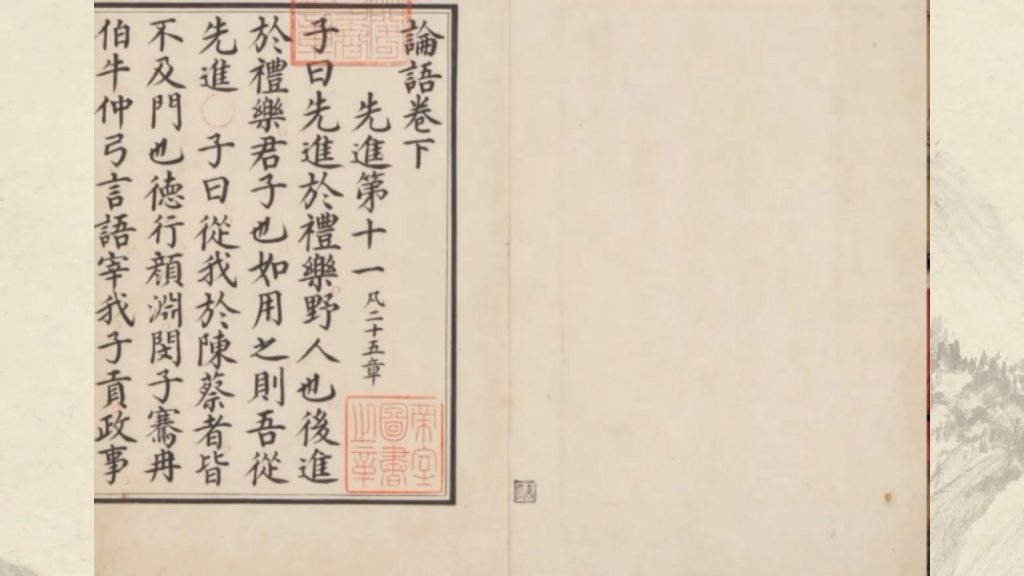 論語卷下
先進第十一 凡二十五章
子曰先進於禮樂野人也後進
於禮樂君子也如用之則吾從
先進○子曰從我於陳蔡者皆
不及門也德行顏淵閔子騫冉
伯牛仲弓言語宰我子貢政事